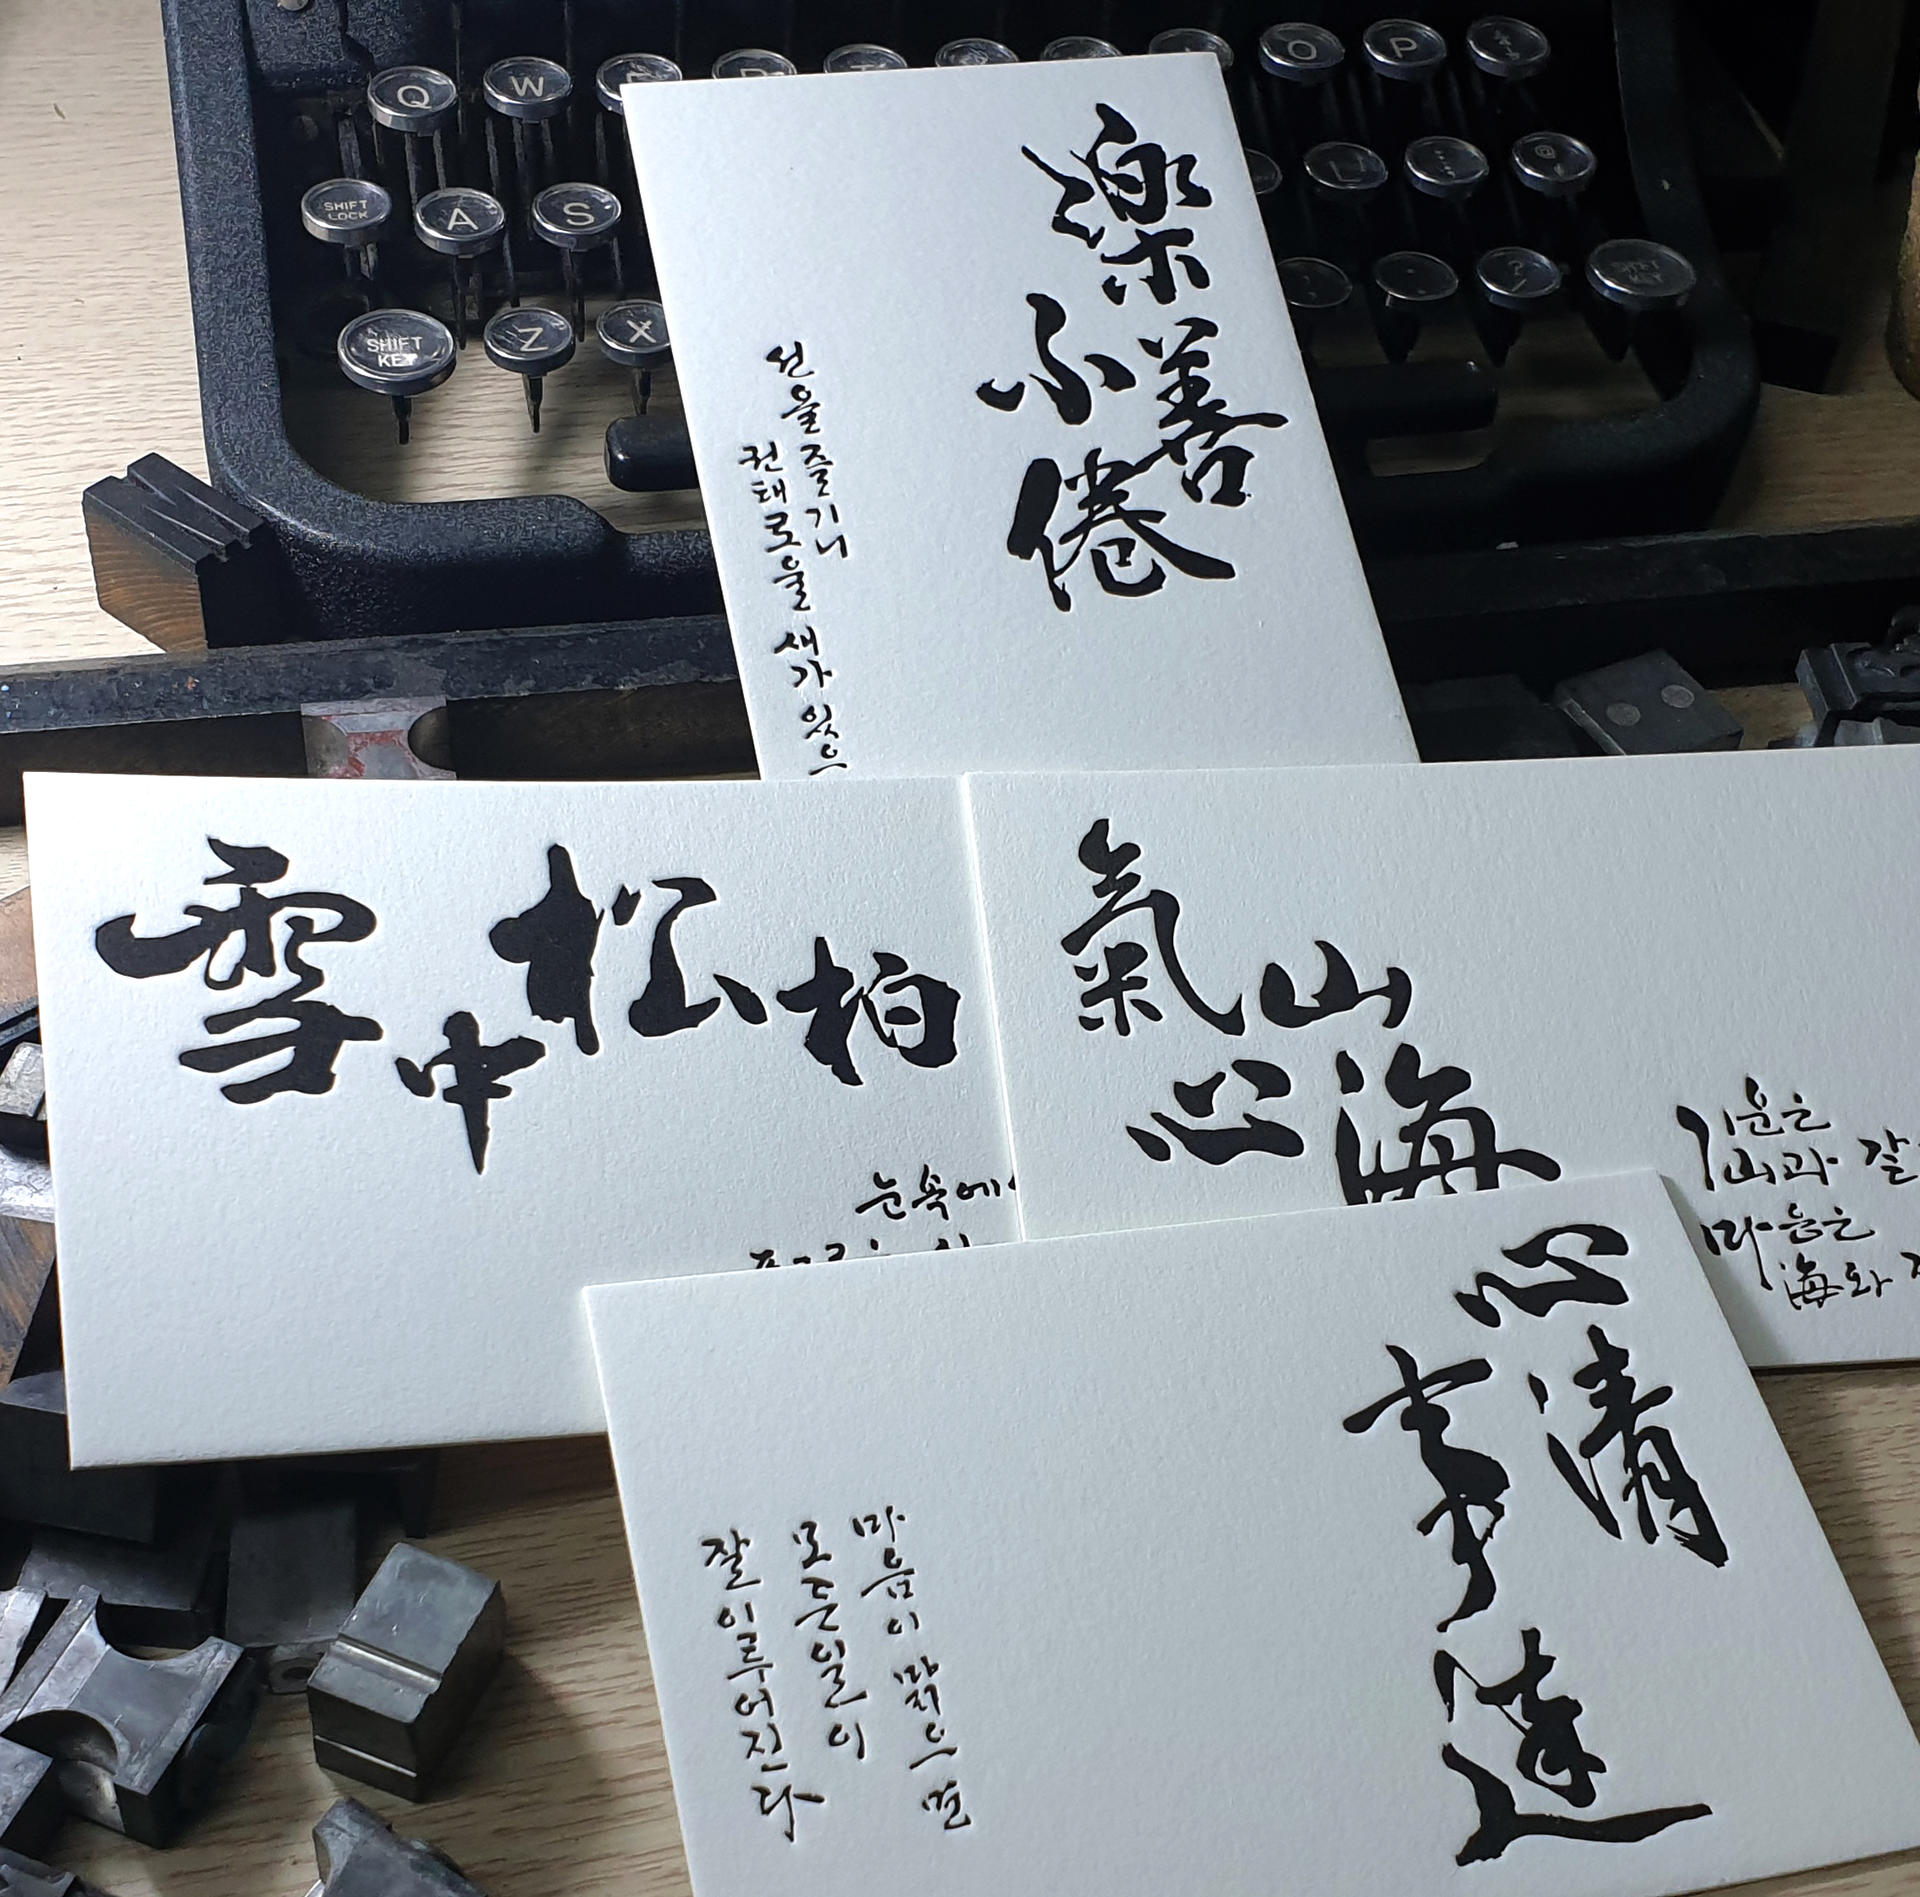 Q W O P
SHIFT LOCK A S
SHIFT KEY Z X
樂善
不倦
선을 즐기니
권태로움
새가 있으
雪中松柏
눈 속에
氣山
心海
기운은
山과 같
마음은
海와
心清
事達
마음이 맑으면
모든 일이
잘 이루어진다